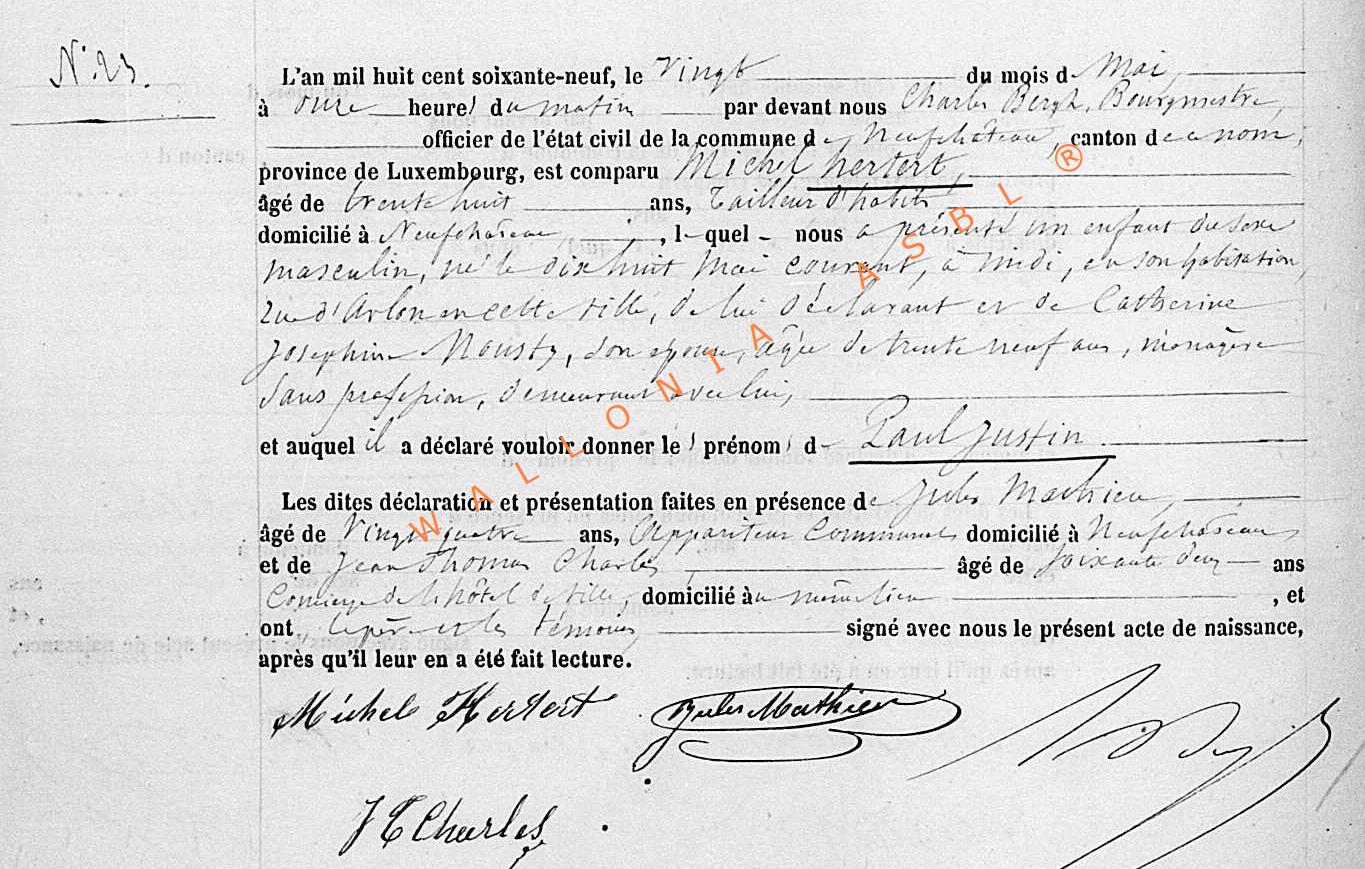 N° 23.
L'an mil huit cent soixante-neuf, le Vingt du mois de Mai,
à onze heures du matin par devant nous Charles Bergh, Bourgmestre,
officier de l'état civil de la commune de Neufchâteau, canton de ce nom,
province de Luxembourg, est comparu Michel Hertert,
âgé de trente huit ans, Tailleur d'habits
domicilié à Neufchâteau, lequel nous a présenté un enfant du sexe
masculin, né le dix huit Mai courant, à midi, en son habitation
rue d'Arlon en cette ville, de lui déclarant et de Catherine
Josephine Mousty, son épouse, âgée de trente neuf ans, ménagère
sans profession, demeurant avec lui,
et auquel il a déclaré vouloir donner les prénoms de Paul Justin
Les dites déclaration et présentation faites en présence de Jules Mathieu,
âgé de Vingt quatre ans, Appariteur Communal domicilié à Neufchâteau,
et de Jean Thomas Charles, âgé de soixante deux ans
Concierge de l'hôtel de ville, domicilié au même lieu, et
ont, le père et les témoins, signé avec nous le présent acte de naissance,
après qu'il leur en a été fait lecture.
Michel Hertert Jules Mathieu
J T Charles
WALLONIA ASBL ®